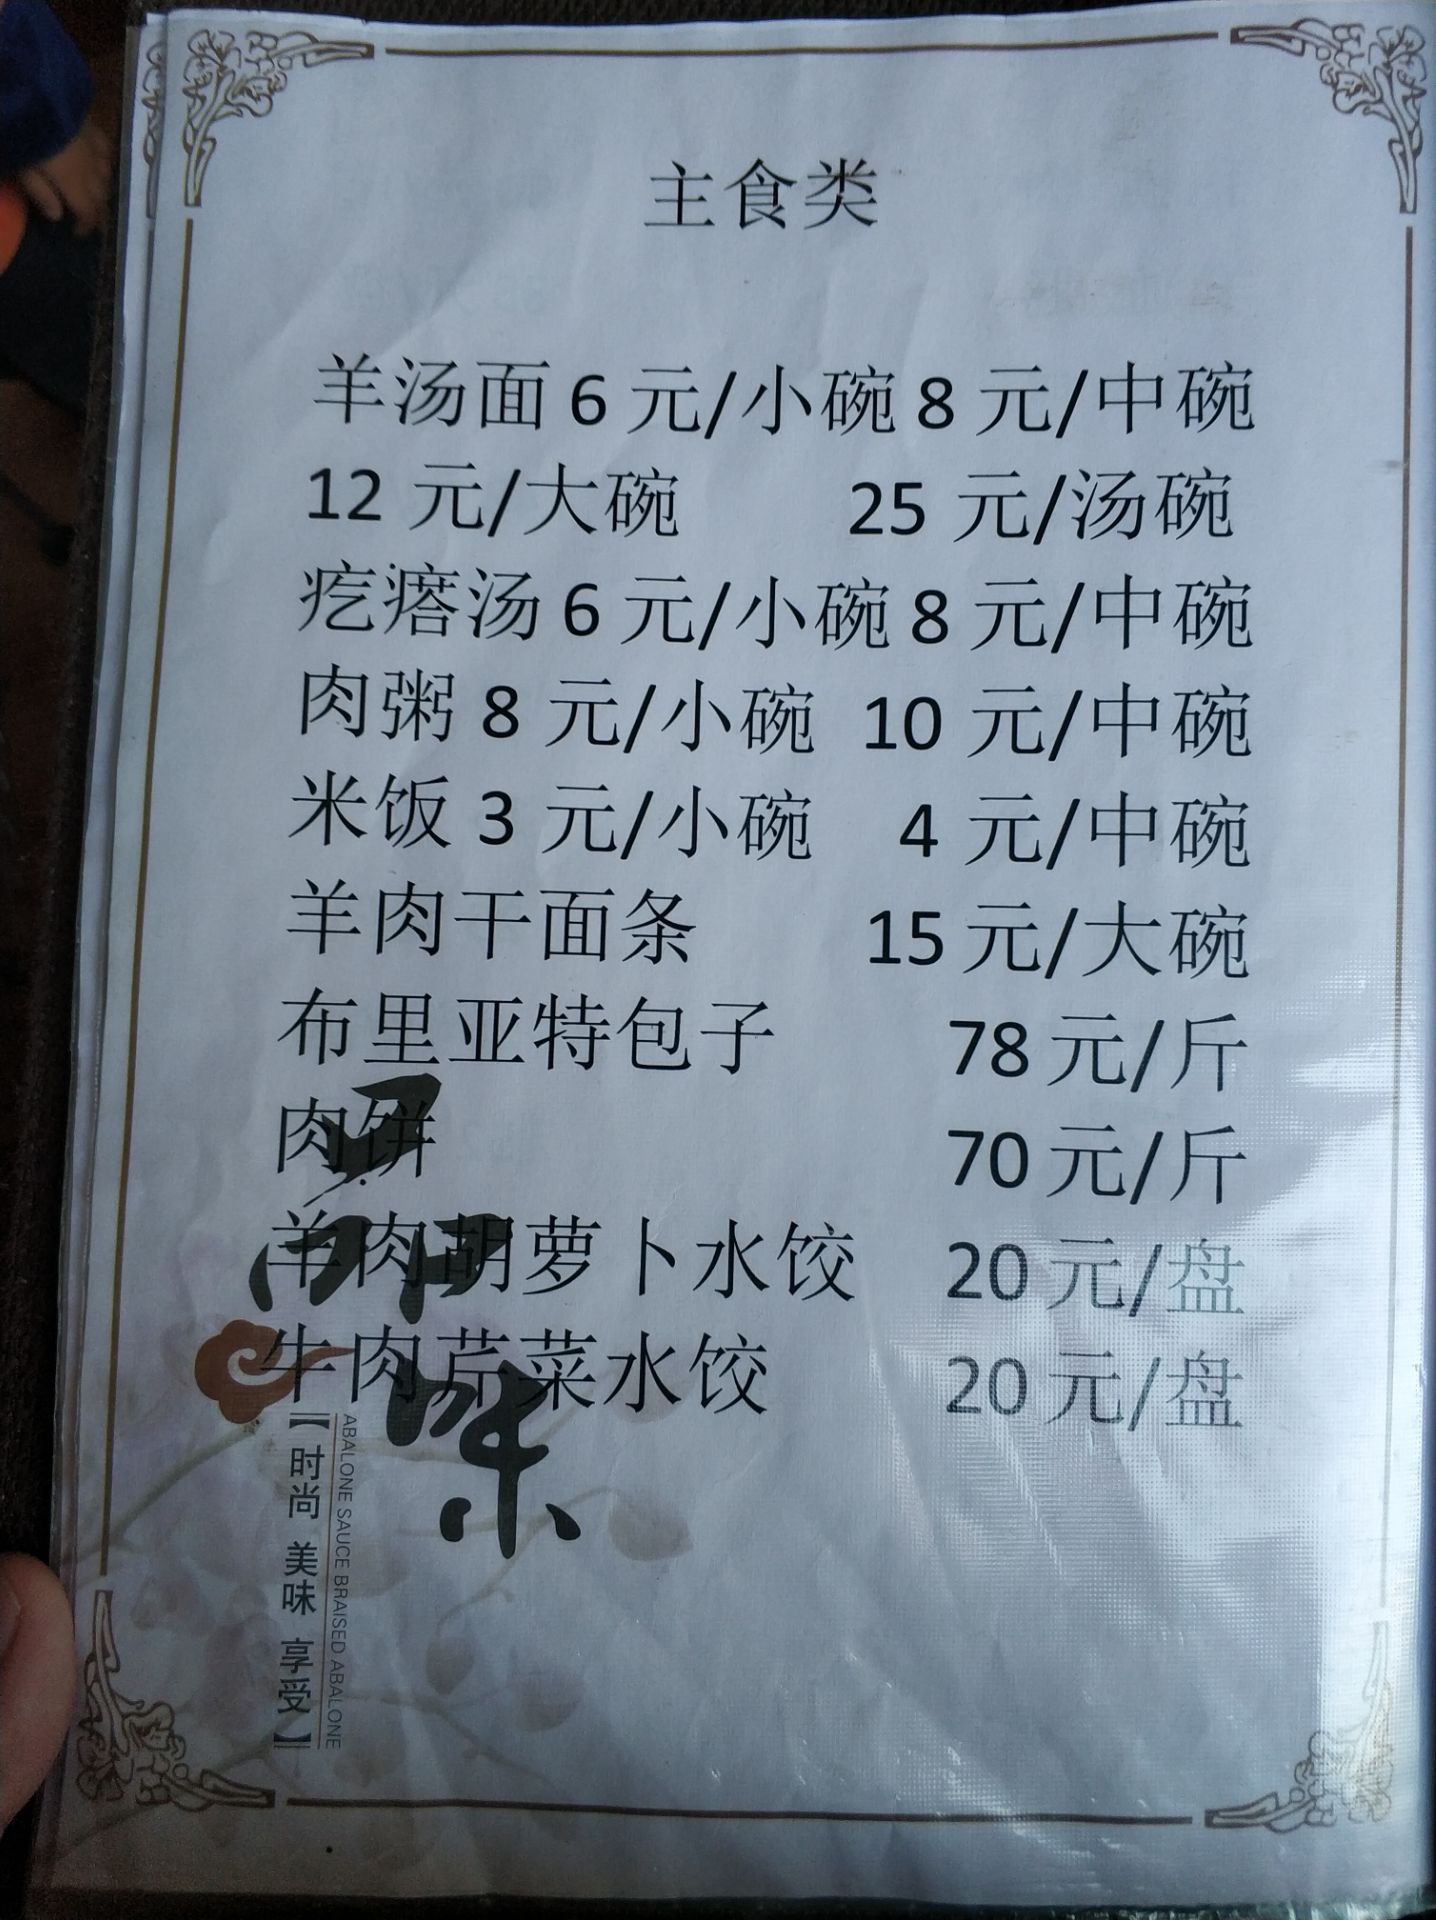 主食类
羊汤面 6 元/小碗 8 元/中碗
12 元/大碗 25 元/汤碗
疙瘩汤 6 元/小碗 8 元/中碗
肉粥 8 元/小碗 10 元/中碗
米饭 3 元/小碗 4 元/中碗
羊肉干面条 15 元/大碗
布里亚特包子 78 元/斤
肉饼 70 元/斤
羊肉胡萝卜水饺 20 元/盘
牛肉芹菜水饺 20 元/盘
味
【时尚 美味 享受】
ABALONE SAUCE BRAISED ABALONE